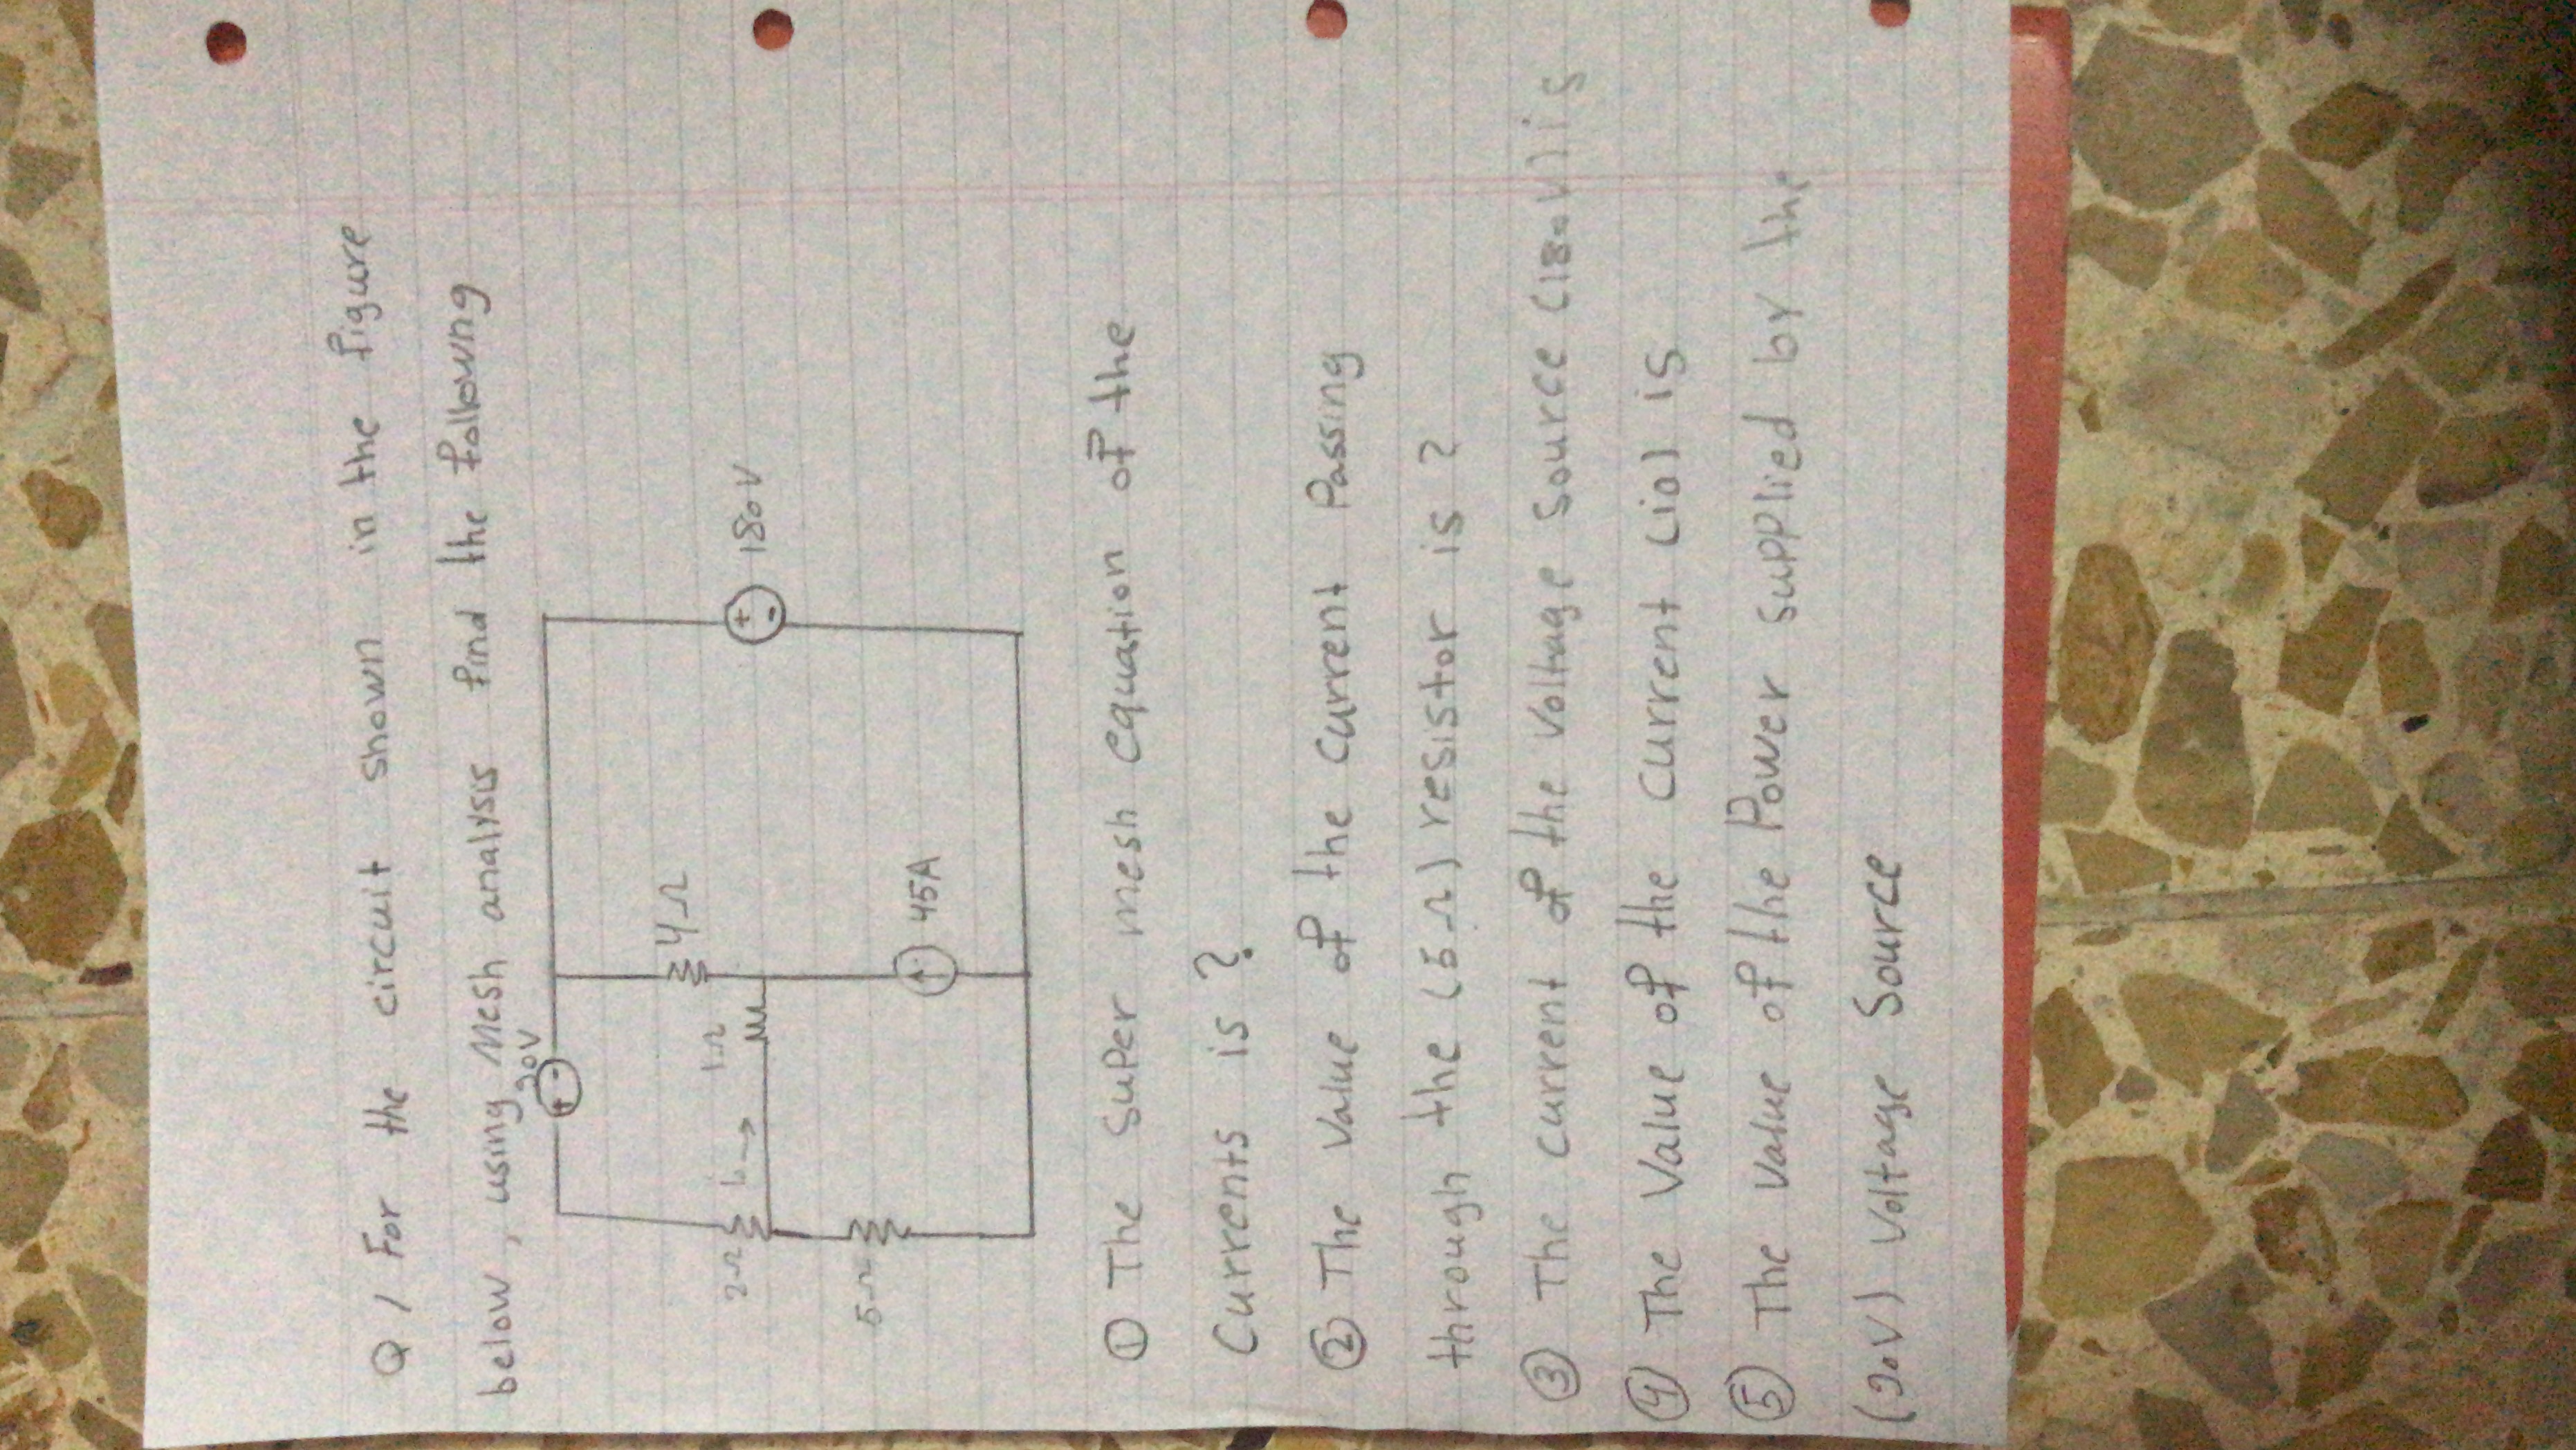 Q / For the circuit shown in the figure
below, using Mesh analysis find the following
30V
4Ω
2Ω io → 1Ω
+
-
180V
5Ω
45A
① The super mesh equation of the
Currents is ?
② The Value of the current Passing
through the (5Ω) resistor is ?
③ The current of the Voltage source (180V) is
④ The Value of the current (io) is
⑤ The value of the Power supplied by the
(30V) Voltage Source